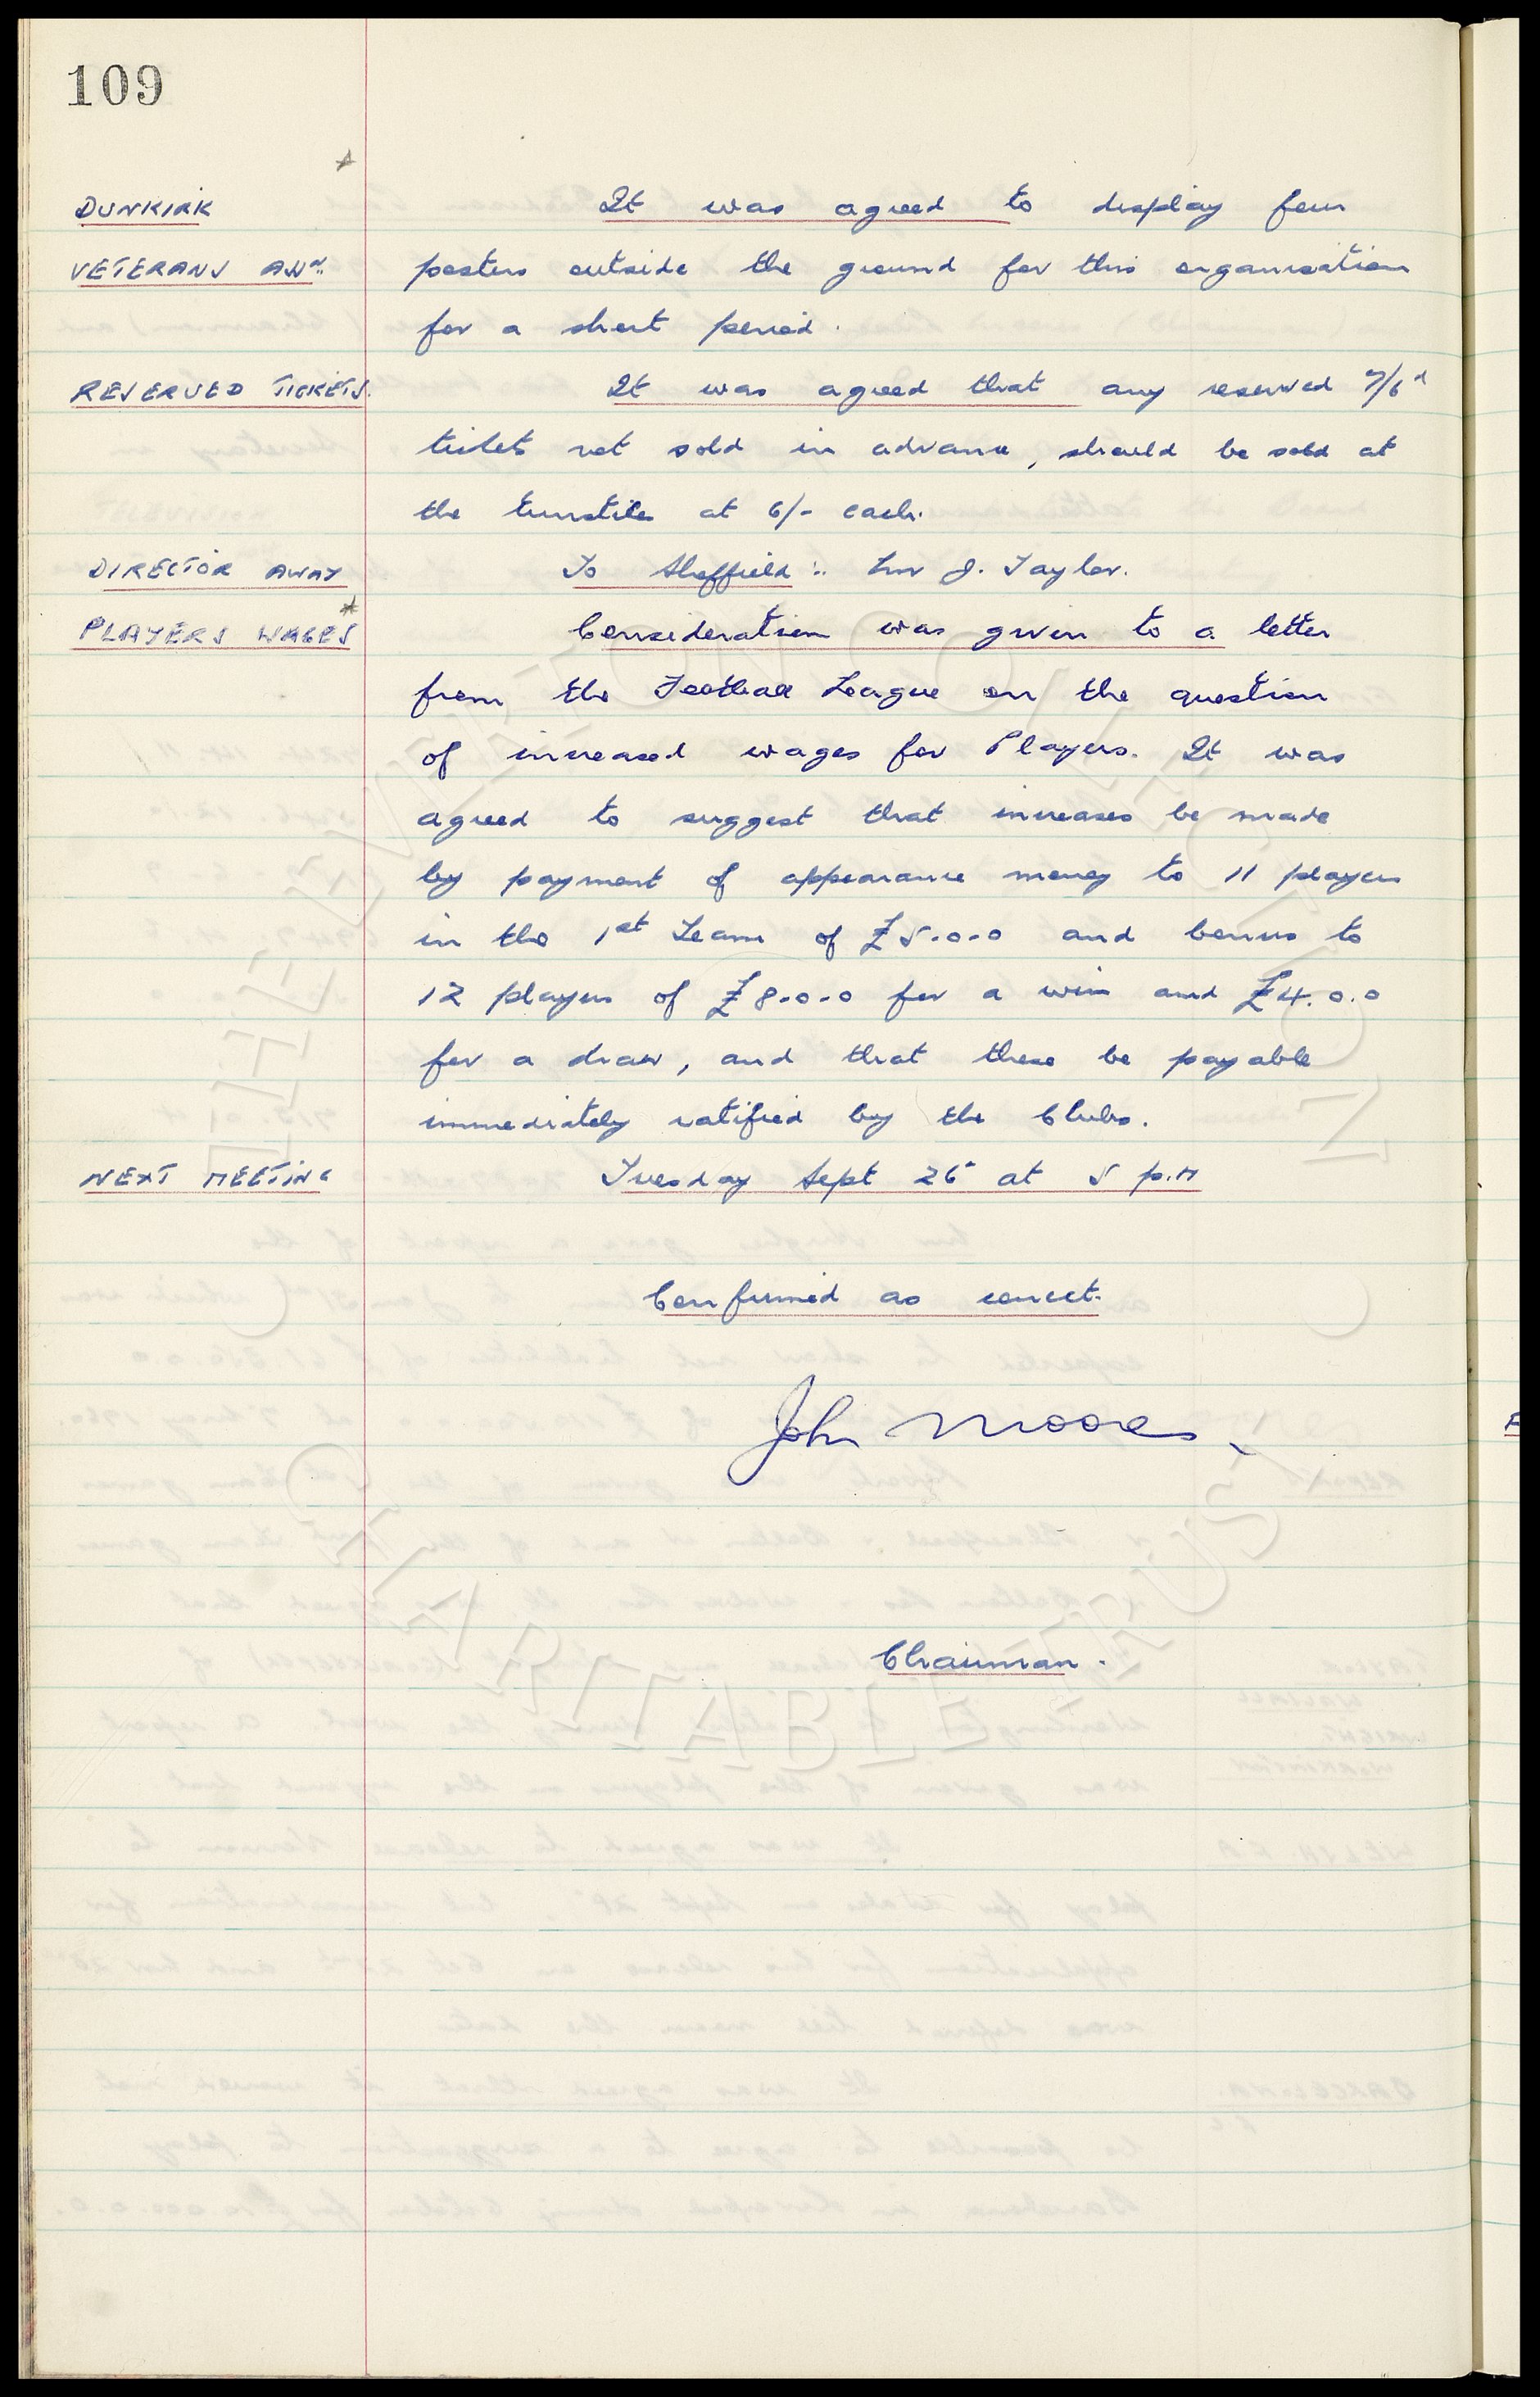 109
DUNKIRK It was agreed to display four
VETERANS Assn. posters outside the ground for this organisation
for a short period.
RESERVED TICKETS. It was agreed that any reserved 7/6d
tickets not sold in advance, should be sold at
the turnstiles at 6/- each.
DIRECTOR AWAY To Sheffield :. Mr J. Taylor.
PLAYERS WAGES Consideration was given to a letter
from the Football League on the question
of increased wages for Players. It was
agreed to suggest that increases be made
by payment of appearance money to 11 players
in the 1st Team of £5.0.0 and bonus to
12 players of £8.0.0 for a win and £4.0.0
for a draw, and that these be payable
immediately ratified by the Clubs.
NEXT MEETING Tuesday Sept 26 at 5 p.m
Confirmed as correct.
John Moores.
Chairman.